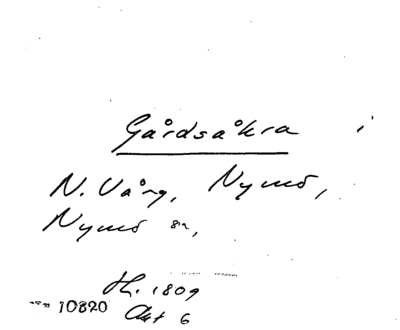 Gårdsåkra i
N. Vång, Nymö,
Nymö sn,
H. 1809
10820 Akt 6